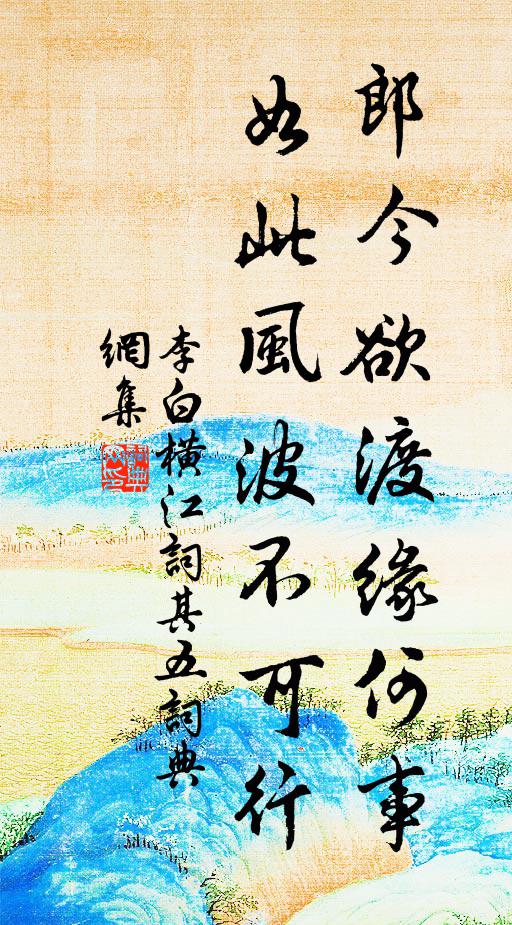 郎今欲渡緣何事
如此風波不可行
李白橫江詞其五詞典
網集